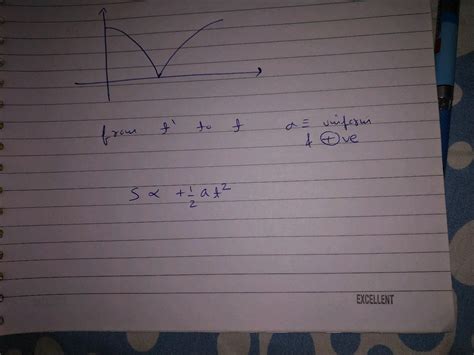 from t' to t a ≡ uniform
& ⊕ve
S ∝ +½at²
EXCELLENT